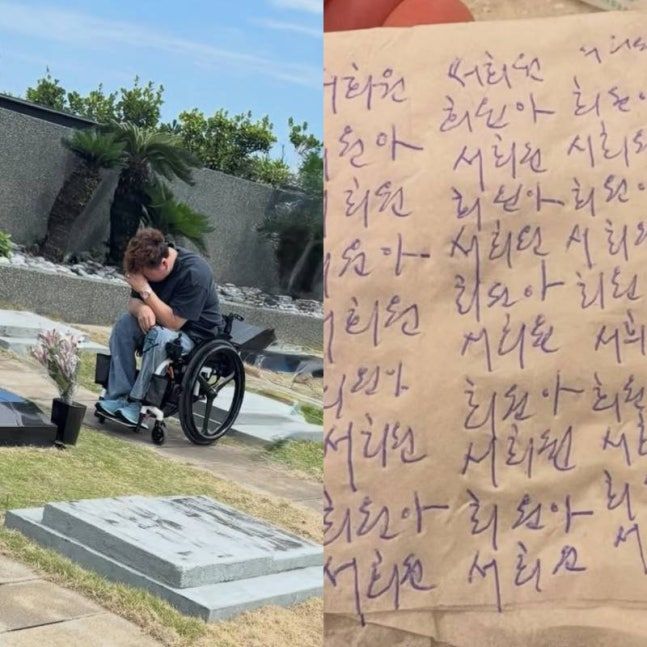 희원 서희원
희원아 희원아
원아 서희원 서희원
희원 희원아 희원아
원아 서희원 서희원
희원아 희원
서희원 서희원 서희
원아 희원아 희원
서희원 서희원 서희
희원아 희원아 희
서희원 서희원 서